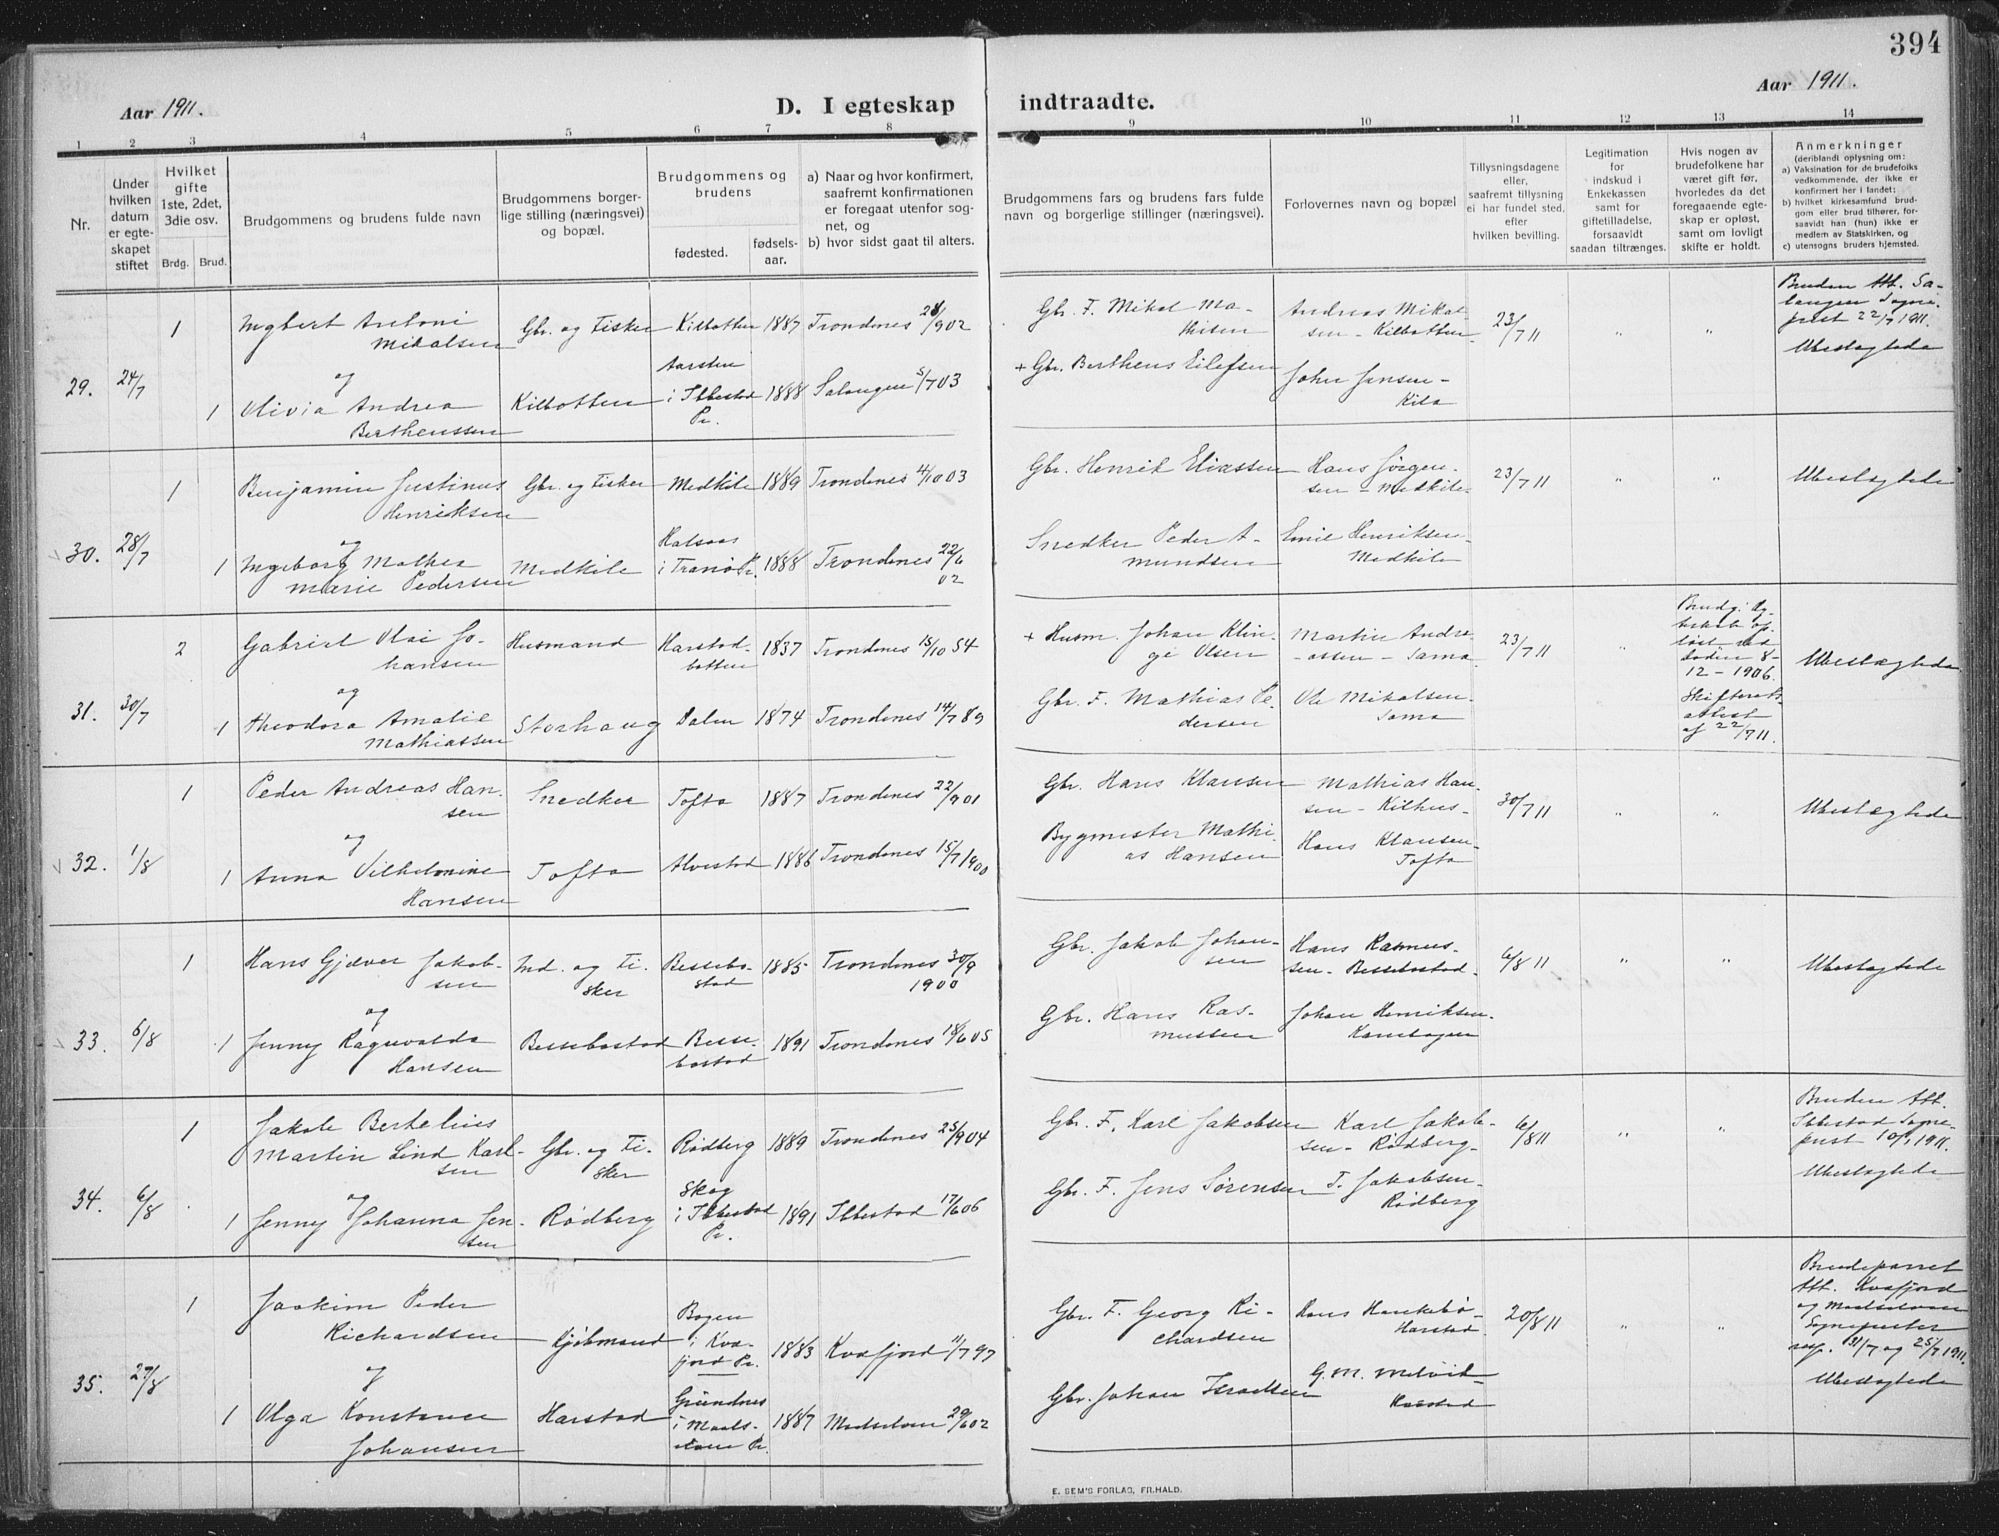 394
Aar 1911.
D. I egteskap
indtraadte.
Aar 1911.
1 2 3 4 5 6 7 8 9 10 11 12 13 14
Nr.
Under hvilken datum er egteskapet stiftet
Hvilket gifte 1ste, 2det, 3die osv.
Brdg. Brud.
Brudgommens og brudens fulde navn
Brudgommens borgerlige stilling (næringsvei) og bopæl.
Brudgommens og brudens
fødested.
fødselsaar.
a) Naar og hvor konfirmert, saafremt konfirmationen er foregaat utenfor sognet, og
b) hvor sidst gaat til alters.
Brudgommens fars og brudens fars fulde navn og borgerlige stillinger (næringsvei).
Forlovernes navn og bopæl
Tillysningsdagene eller, saafremt tillysning ei har fundet sted, efter hvilken bevilling.
Legitimation for indskud i Enkekassen samt for giftetilladelse, forsaavidt saadan tiltrænges.
Hvis nogen av brudefolkene har været gift før, hvorledes da det foregaaende egteskap er opløst, samt om lovligt skifte er holdt.
Anmerkninger
(deriblandt oplysning om:
a) Vaksination for de brudefolks vedkommende, der ikke er konfirmert her i landet;
b) hvilket kirkesamfund brudgom eller brud tilhører, forsaavidt han (hun) ikke er medlem av Statskirken, og
c) utensogns bruders hjemsted.
29. 24/7
1 Ingbert Antoni Mikalsen Gbr. og Fisker Kilbotten 1887 Trondenes 28/9 02
og
1 Olivia Andrea Berthenssen Kilbotten Aarsten i Ibbestad Pr. 1888 Salangen 5/7 03
Gbr. F. Mikal Mathisen
+ Gbr. Berthens Eilefsen
Andreas Mikalsen - Kilbotten
John Jensen - Kila
23/7 11 " "
Bruden Att. Salangen Sognepræst 22/7 1911.
Ubeslægtede
30. 28/7
1 Benjamin Justinus Henriksen Gbr. og Fisker Medkile 1889 Trondenes 4/10 03
og
1 Ingeborg Mathea Marie Pedersen Medkile i Tranø Pr. 1888 Trondenes 22/6 02
Gbr. Henrik Eliassen
Snedker Peder Amundsen
Hans Jørgensen - Medkile
Emil Henriksen - Medkile
23/7 11 " "
Ubeslægtede
31. 30/7
2 Gabriel Olai Johansen Husmand Harstadbotten 1837 Trondenes 15/10 54
og
1 Theodora Amalie Mathiassen Storhaug Dalen 1874 Trondenes 14/7 89
+ Husm. Johan Klinge Olsen
Gbr. F. Mathias Pedersen
Martin Andreassen - Sama
Ole Mikalsen - Sama
23/7 11 "
Brudg. Egteskab opløst ved Døden 8-12-1906. Skifteretsattest af 22/7 11.
Ubeslægtede
32. 1/8
1 Peder Andreas Hansen Snedker Tofta 1887 Trondenes 22/9 01
og
1 Anna Vilhelmine Hansen Tofta Alvestad 1886 Trondenes 15/7 1900
Gbr. Hans Klausen
Bygmester Mathias Hansen
Mathias Hansen - Kilhus
Hans Klausen - Tofta
30/7 11 " "
Ubeslægtede
33. 6/8
1 Hans Gjæver Jakobsen Ind. og Fisker Bessebostad 1885 Trondenes 30/9 1900
og
1 Jenny Ragnvalda Hansen Bessebostad Bessebostad 1891 Trondenes 18/6 05
Gbr. Jakob Johansen
Gbr. Hans Rasmussen
Hans Rasmussen - Bessebostad
Johan Henriksen - Kanebogen
6/8 11 " "
Ubeslægtede
34. 6/8
1 Jakob Bertelius Martin Lind Karlsen Gbr. og Fisker Rødberg 1889 Trondenes 25/9 04
og
1 Jenny Johanna Jensen Rødberg Skog i Ibbestad Pr. 1891 Ibbestad 17/6 06
Gbr. F. Karl Jakobsen
Gbr. F. Jens Sørensen
Karl Jakobsen - Rødberg
T. Jakobsen - Rødberg
6/8 11 " "
Bruden Att. Ibbestad Sognepræst 10/7 1911.
Ubeslægtede
35. 27/8
1 Joakim Peder Richardsen Kjøbmand Bogen i Kvæfjord Pr. 1883 Kvæfjord 11/7 97
og
1 Olga Konstance Johansen Harstad Grundnes i Maalselven Pr. 1887 Maalselven 29/6 02
Gbr. F. Georg Richardsen
Gbr. Johan Israelsen
Hans Hankebø - Harstad
G. M. Melvik - Harstad
20/8 11 " "
Brudeparret Att. Kvæfjord og Maalselven Sognepræster resp. 31/7 og 25/7 1911.
Ubeslægtede
E. SEM'S FORLAG, FR.HALD.